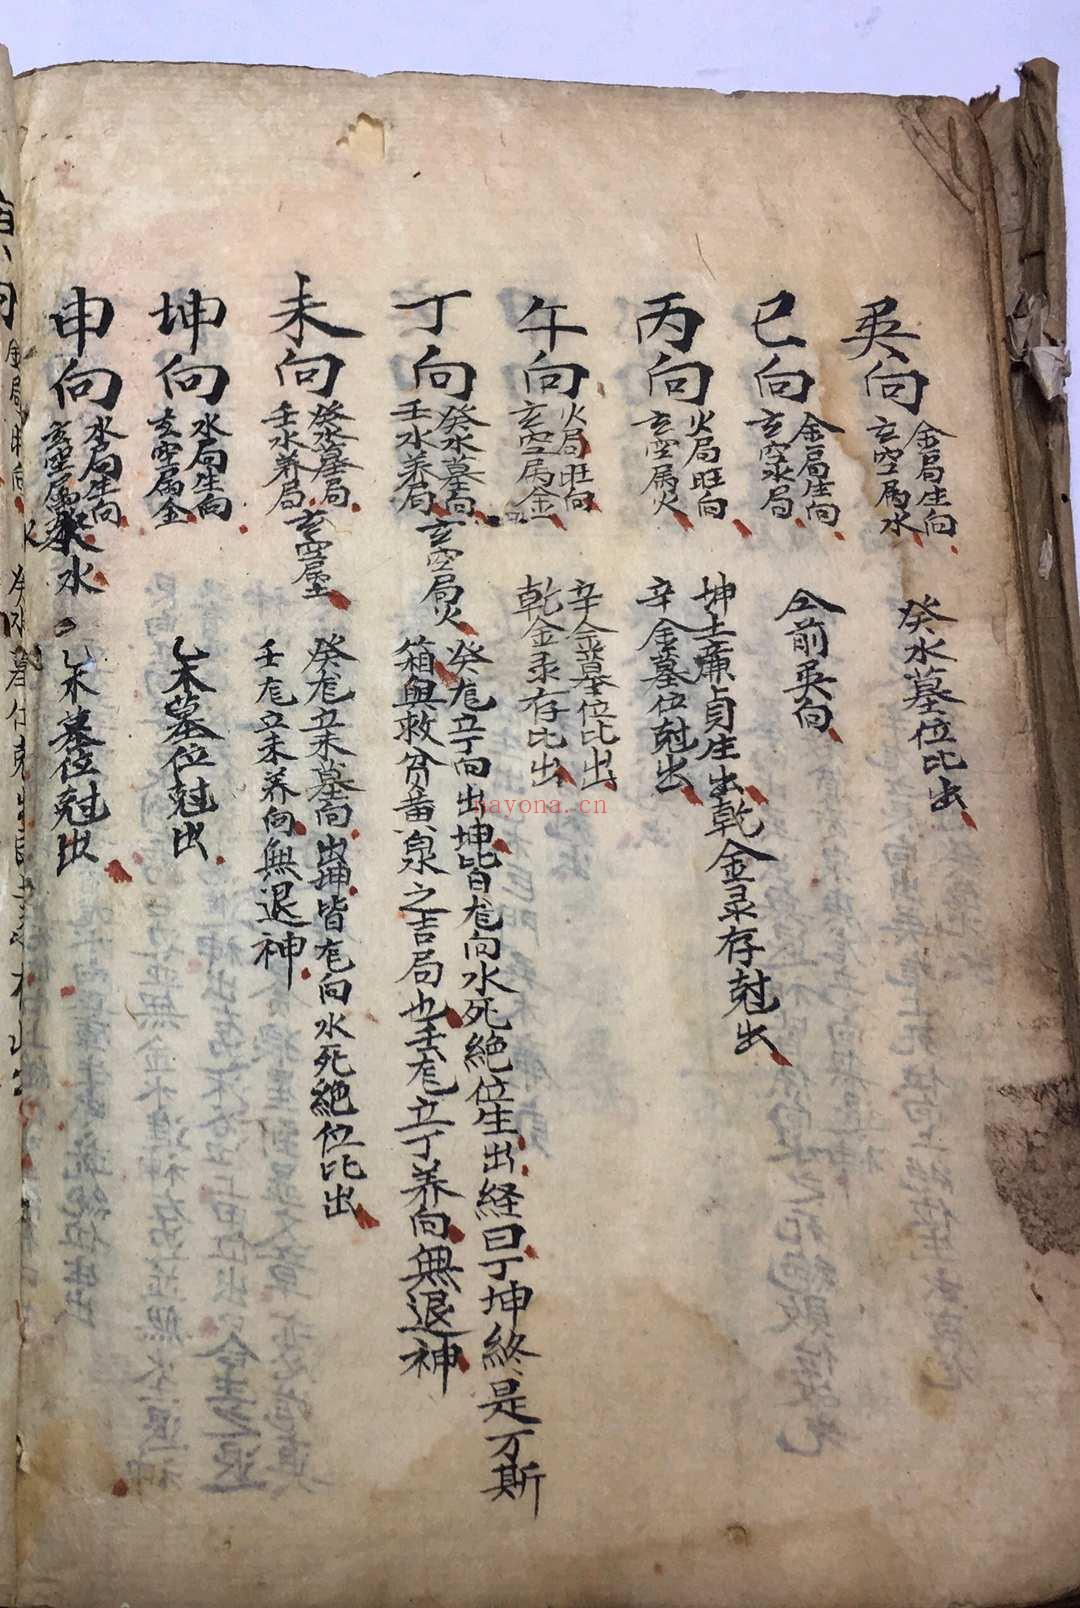 巽向
金局生向
玄空属水
癸水墓位比出
巳向
金局生向
玄空水局
仝前巽向
丙向
火局旺向
玄空属火
坤土廉貞生出乾金彔存尅出
辛金墓位尅出
午向
火局旺向
玄空属金
辛金墓位比出
乾金彔存比出
丁向
癸水墓向
壬水养局
玄空局火
癸龙立丁向出坤皆龙向水死絶位生出経曰丁坤終是万斯
箱與救贫黄泉之吉局也壬龙立丁养向無退神
未向
癸水墓局
壬水养局
玄空属土
癸龙立未墓向出坤皆龙向水死絶位比出
壬龙立未养向無退神
坤向
水局生向
玄空属金
乙木墓位尅出
申向
水局生向
玄空属水
乙木墓位尅出
nayona.cn